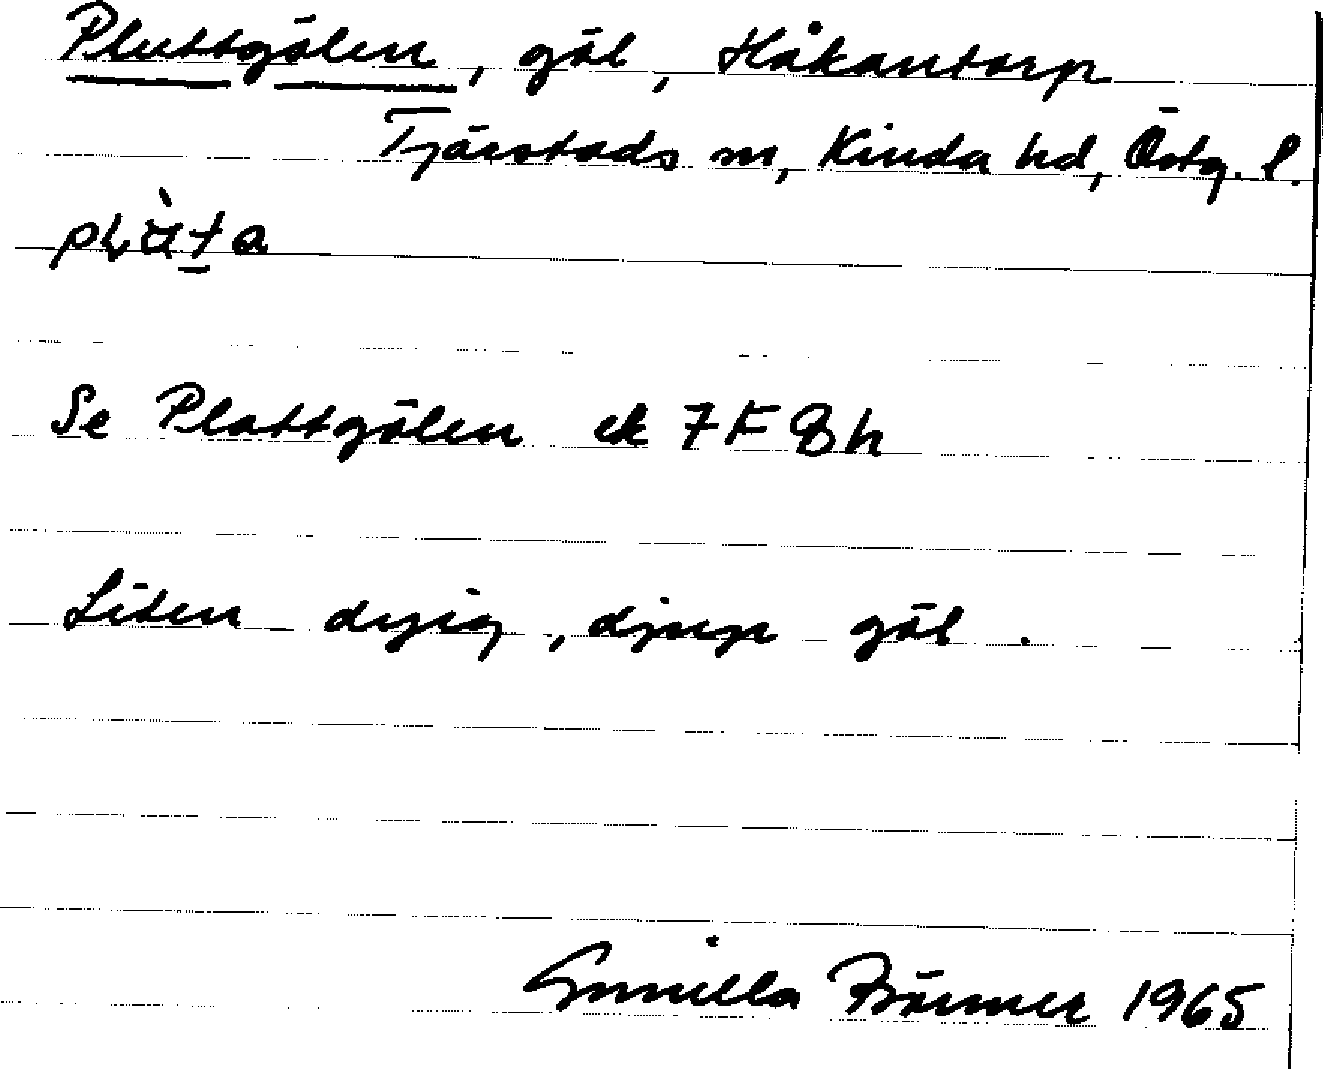 Pluttgölen, göl, Håkantorp
Tjärstads sn, Kinda hd, Östg. l.
Se Plattgölen ek 7F8h
Liten dyig, djup göl.
Gunilla 1965